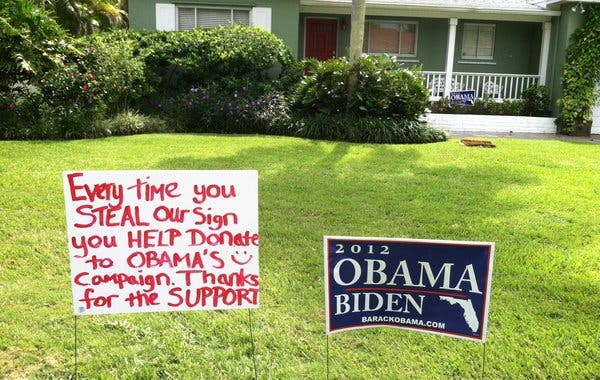 Every time you
STEAL Our Sign
you HELP Donate
to OBAMA'S
Campaign. Thanks
for the SUPPORT
2012
OBAMA
BIDEN
BARACKOBAMA.COM
OBAMA